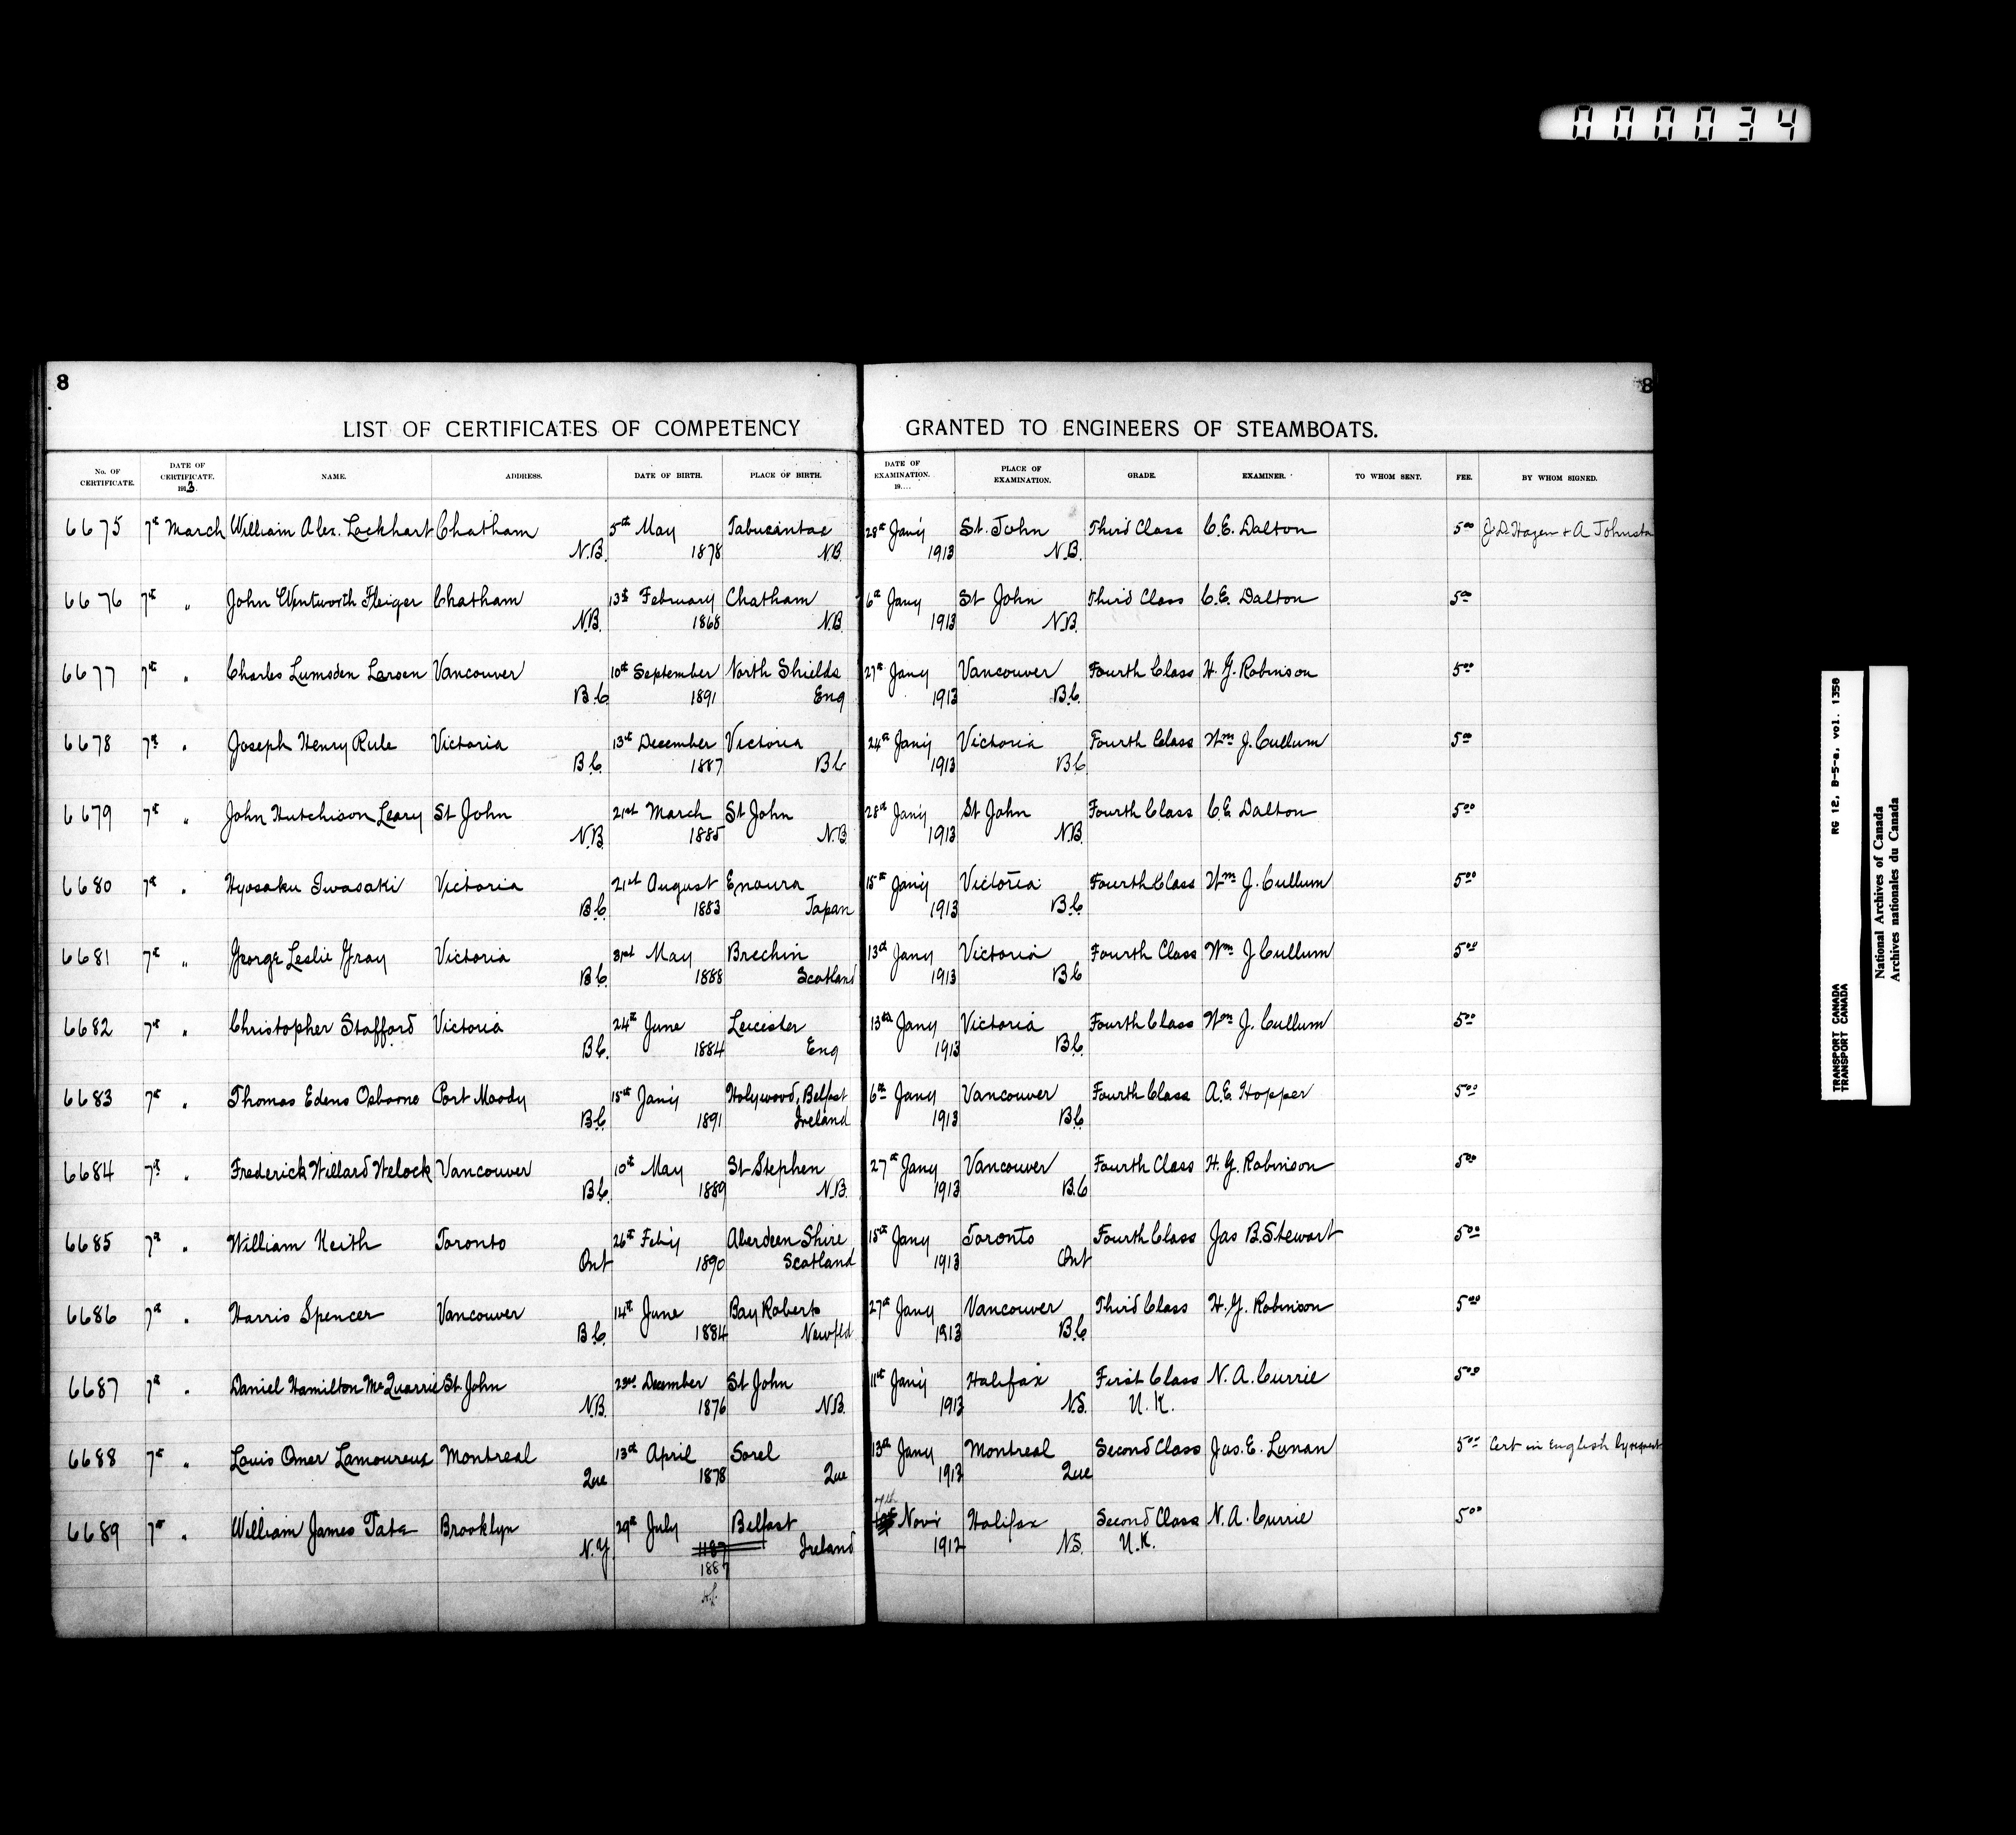 000034
8
8
LIST OF CERTIFICATES OF COMPETENCY GRANTED TO ENGINEERS OF STEAMBOATS.
No. OF CERTIFICATE. DATE OF CERTIFICATE. 1913. NAME. ADDRESS. DATE OF BIRTH. PLACE OF BIRTH. DATE OF EXAMINATION. 19.... PLACE OF EXAMINATION. GRADE. EXAMINER. TO WHOM SENT. FEE. BY WHOM SIGNED.
6675 7th March William Alex. Lockhart Chatham 5th May Tabucintac 28th Jany St. John Third Class C.E. Dalton 500 J.D. Hazen + A Johnston
N.B. 1878 N.B. 1913 N.B.
6676 7th " John Wentworth Fleiger Chatham 13th February Chatham 6th Jany St John Third Class C.E. Dalton 500
N.B. 1868 N.B. 1913 N.B.
6677 7th " Charles Lumsden Larsen Vancouver 10th September North Shields 27th Jany Vancouver Fourth Class H. G. Robinson 500
B.C. 1891 Eng 1913 B.C.
6678 7th " Joseph Henry Rule Victoria 13th December Victoria 24th Jany Victoria Fourth Class Wm J. Cullum 500
B.C. 1887 B.C 1913 B.C
6679 7th " John Hutchison Leary St John 21st March St John 28th Jany St John Fourth Class C.E. Dalton 500
N.B. 1885 N.B. 1913 N.B.
6680 7th " Hyosaku Iwasaki Victoria 21st August Enoura 15th Jany Victoria Fourth Class Wm J. Cullum 500
B.C. 1883 Japan 1913 B.C
6681 7th " George Leslie Gray Victoria 31st May Brechin 13th Jany Victoria Fourth Class Wm J Cullum 500
B.C. 1888 Scotland 1913 B.C
6682 7th " Christopher Stafford Victoria 24th June Leicester 13th Jany Victoria Fourth Class Wm J. Cullum 500
B.C. 1884 Eng 1913 B.C.
6683 7th " Thomas Edens Osborne Port Moody 15th Jany Holywood, Belfast 6th Jany Vancouver Fourth Class A.E. Hopper 500
B.C. 1891 Ireland 1913 B.C
6684 7th " Frederick Willard Welock Vancouver 10th May St Stephen 27th Jany Vancouver Fourth Class H. G. Robinson 500
B.C. 1889 N.B. 1913 B.C
6685 7th " William Keith Toronto 26th Feby Aberdeen Shire 15th Jany Toronto Fourth Class Jas B. Stewart 500
Ont 1890 Scotland 1913 Ont
6686 7th " Harris Spencer Vancouver 14th June Bay Roberts 27th Jany Vancouver Third Class H. G. Robinson 500
B.C. 1884 Newfld 1913 B.C.
6687 7th " Daniel Hamilton McQuarrie St. John 23rd December St John 11th Jany Halifax First Class N. A. Currie 500
N.B. 1876 N.B. 1913 N.S. U.K.
6688 7th " Louis Omer Lamoureux Montreal 13th April Sorel 13th Jany Montreal Second Class Jas. E. Lunan 500 Cert in English by request
Que 1878 Que 1913 Que
6689 7th " William James Tate Brooklyn 29th July Belfast 7th Novr Halifax Second Class N. A. Currie 500
N.Y. 1187 Ireland 1912 N.S. U.K.
1887
RG 12, B-5-a, vol. 1358
TRANSPORT CANADA
TRANSPORT CANADA
National Archives of Canada
Archives nationales du Canada